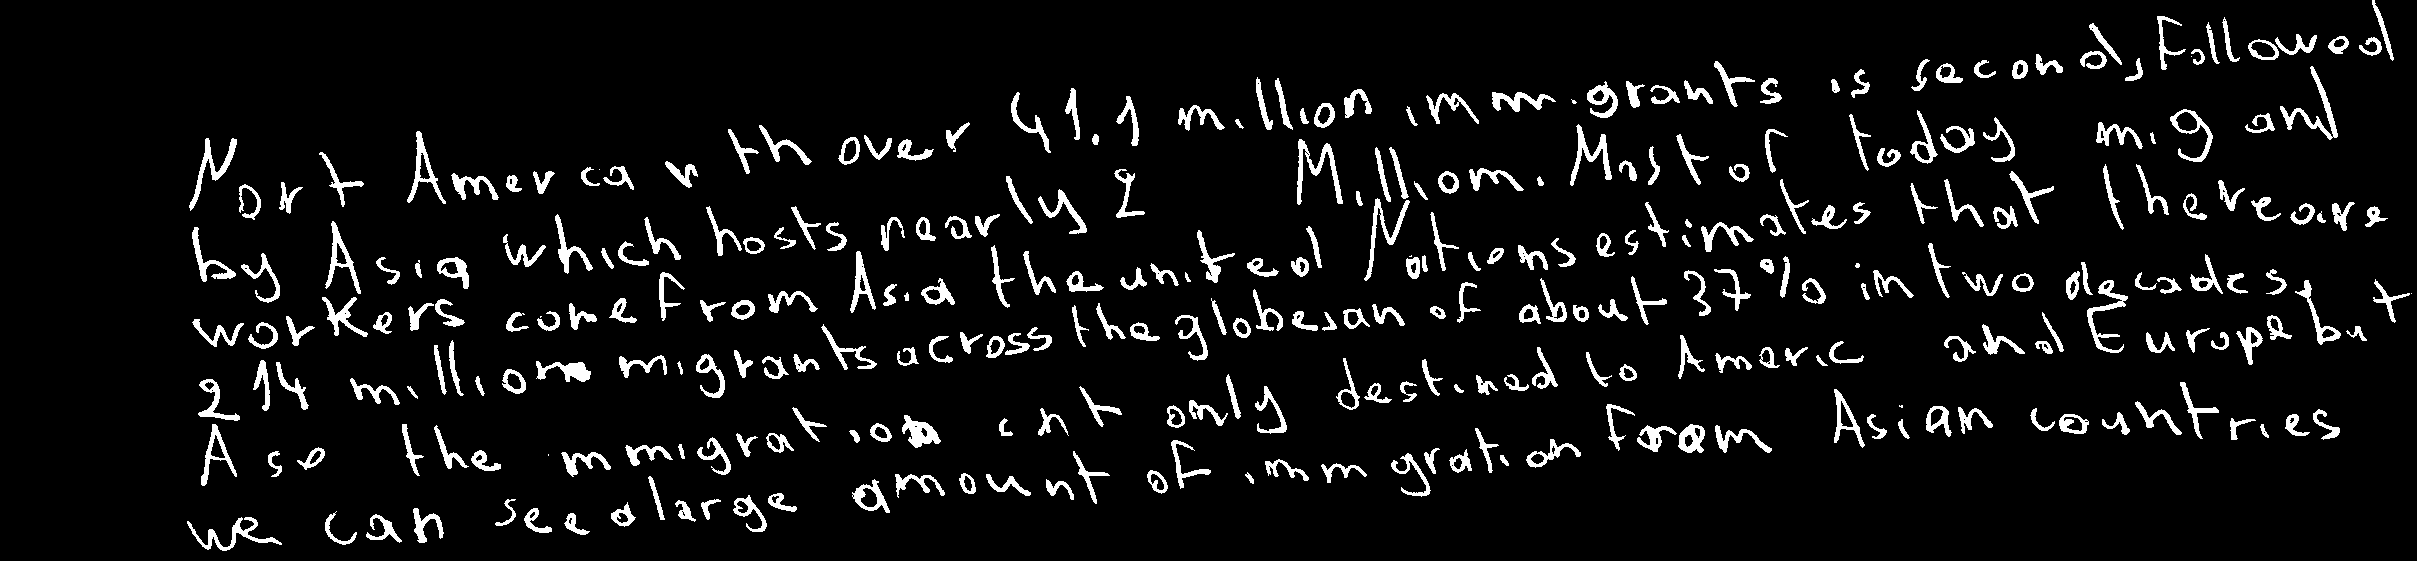 Nort Amer ca w th over 41.1 million immigrants is second, Followed
by Asia which hosts nearly 2 Million. Most of today mig and
workers come from Asia the united Nations estimates that there are
214 million migrants across the globesan of about 37% in two decades,
A so the mmigration only destined to Americ and Europe but
we can see a large amount of imm gration from Asian countries